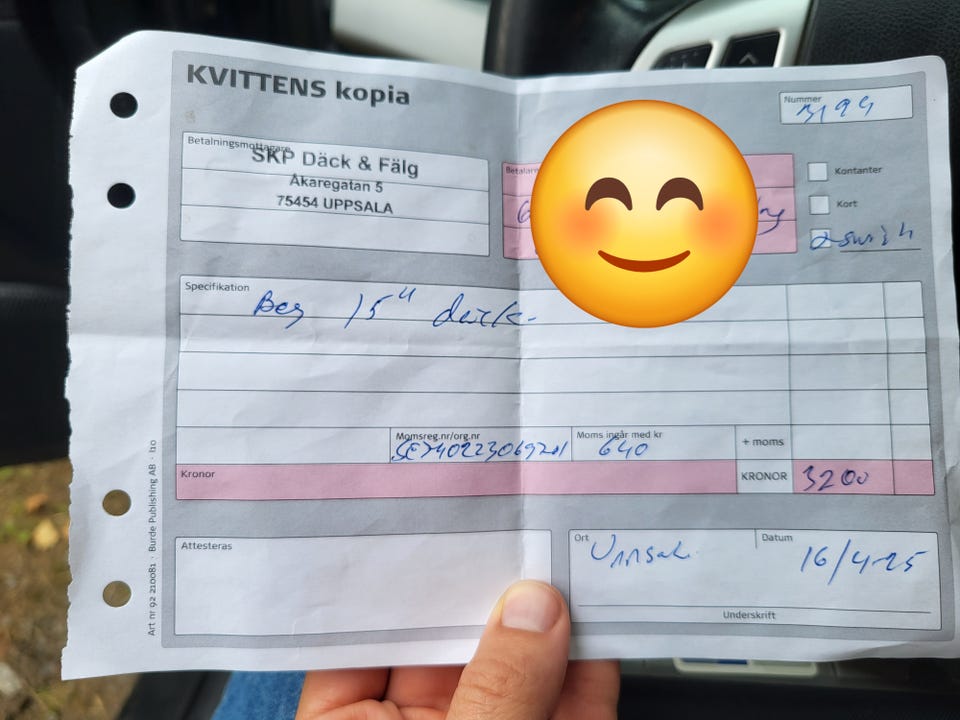 KVITTENS kopia
Nummer
3199
Betalningsmottagare
SKP Däck & Fälg
Åkaregatan 5
75454 UPPSALA
Kontanter
Kort
swish
Specifikation
Beg 15" däck
Momsreg.nr/org.nr
Moms ingår med kr
640
+ moms
Kronor
KRONOR
3200
Attesteras
Ort
Uppsala
Datum
16/4-25
Underskrift
Art nr 92 210081 · Burde Publishing AB ·